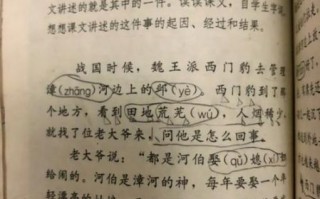 文讲述的就是其中的一件。读读课文，自学生字词，
想想课文讲述的这件事的起因、经过和结果。
战国时候，魏王派西门豹去管理
漳(zhāng)河边上的邺(yè)。西门豹到了那
个地方，看到田地荒芜(wú)，人烟稀少，
就找了位老大爷来，问他是怎么回事。
老大爷说：“都是河伯娶(qǔ)媳(xí)妇
给闹的。河伯是漳河的神，每年要娶一个年